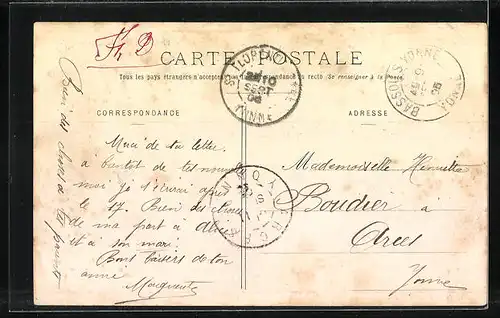 CARTE POSTALE
Tous les pays étrangers n'acceptent pas la correspondance au recto (Se renseigner à la Poste).
CORRESPONDANCE
ADRESSE
ST FLORENTIN
10
SEPT
06
YONNE
BASSOU S. YONNE
9
06
YONNE
Merci de ta lettre
à bientôt de tes nouvelles
moi je t'écrirai après
le 17. Bien des choses
de ma part à
et à son mari
Bons baisers de ton
amie
Marguerite
Bien des choses à tes parents
Mademoiselle Henriette
Boudier à
Arces
Yonne